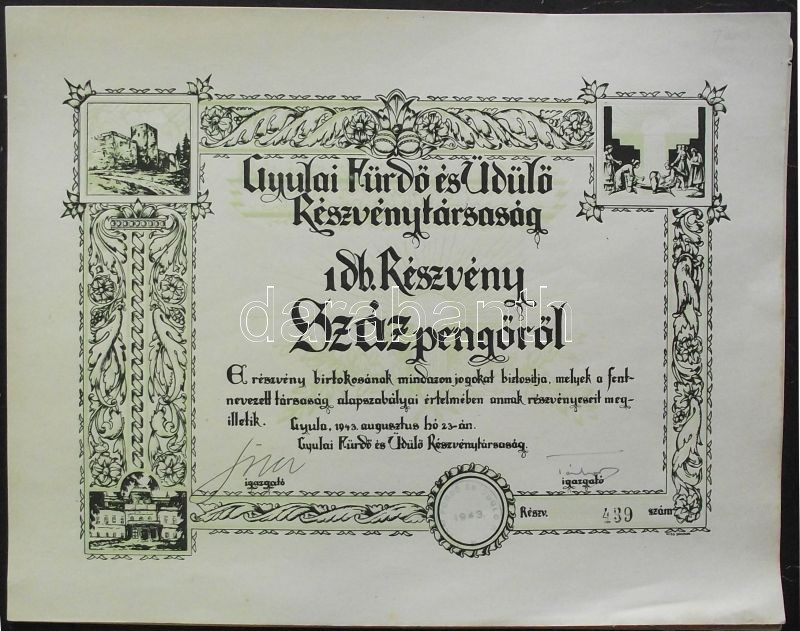 Gyulai Fürdő és Üdülő
Részvénytársaság
1 db. Részvény
Száz pengőről
E részvény birtokosának mindazon jogokat biztosítja, melyek a fent-
nevezett társaság alapszabályai értelmében annak részvényeseit meg-
illetik. Gyula, 1943. augusztus hó 23-án.
Gyulai Fürdő és Üdülő Részvénytársaság.
igazgató igazgató
1943.
Részv. 439 szám
darabanth